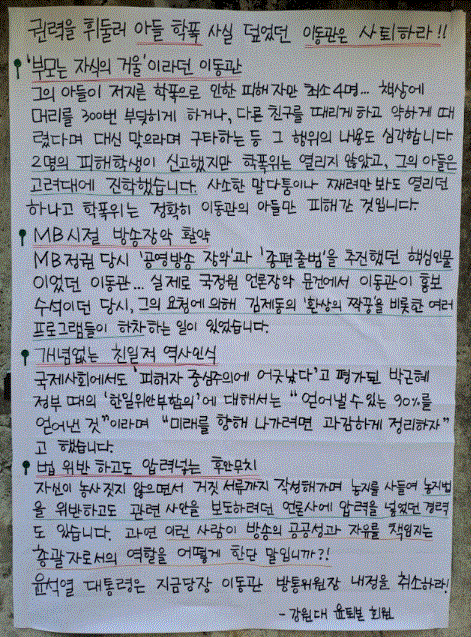 권력을 휘둘러 아들 학폭 사실 덮었던 이동관은 사퇴하라!!
'부모는 자식의 거울'이라던 이동관
그의 아들이 저지른 학폭으로 인한 피해자만 최소 4명... 책상에
머리를 300번 부딪히게 하거나, 다른 친구를 때리게 하고 약하게 때
렸다며 대신 맞으라며 구타하는 등 그 행위의 내용도 심각합니다
2명의 피해학생이 신고했지만 학폭위는 열리지 않았고, 그의 아들은
고려대에 진학했습니다. 사소한 말다툼이나 째려만 봐도 열리던
하나고 학폭위는 정확히 이동관의 아들만 피해간 것입니다.
MB시절 방송장악 활약
MB정권 당시 '공영방송 장악'과 '종편출범'을 추진했던 핵심인물
이었던 이동관... 실제로 국정원 언론장악 문건에서 이동관이 홍보
수석이던 당시, 그의 요청에 의해 김제동의 '환상의 짝꿍'을 비롯한 여러
프로그램들이 하차하는 일이 있었습니다.
개념없는 친일적 역사인식
국제사회에서도 '피해자 중심주의에 어긋났다'고 평가된 박근혜
정부 때의 '한일위안부합의'에 대해서는 "얻어낼 수 있는 90%를
얻어낸 것"이라며 "미래를 향해 나가려면 과감하게 정리하자"
고 했습니다.
법 위반하고도 압력넣는 후안무치
자신이 농사짓지 않으면서 거짓 서류까지 작성해가며 농지를 사들여 농지법
을 위반하고도 관련 사안을 보도하려던 언론사에 압력을 넣었던 경력
도 있습니다. 과연 이런 사람이 방송의 공공성과 자유를 책임지는
총괄자로서의 역할을 어떻게 한단 말입니까?!
윤석열 대통령은 지금당장 이동관 방통위원장 내정을 취소하라!
- 강원대 윤퇴본 회원